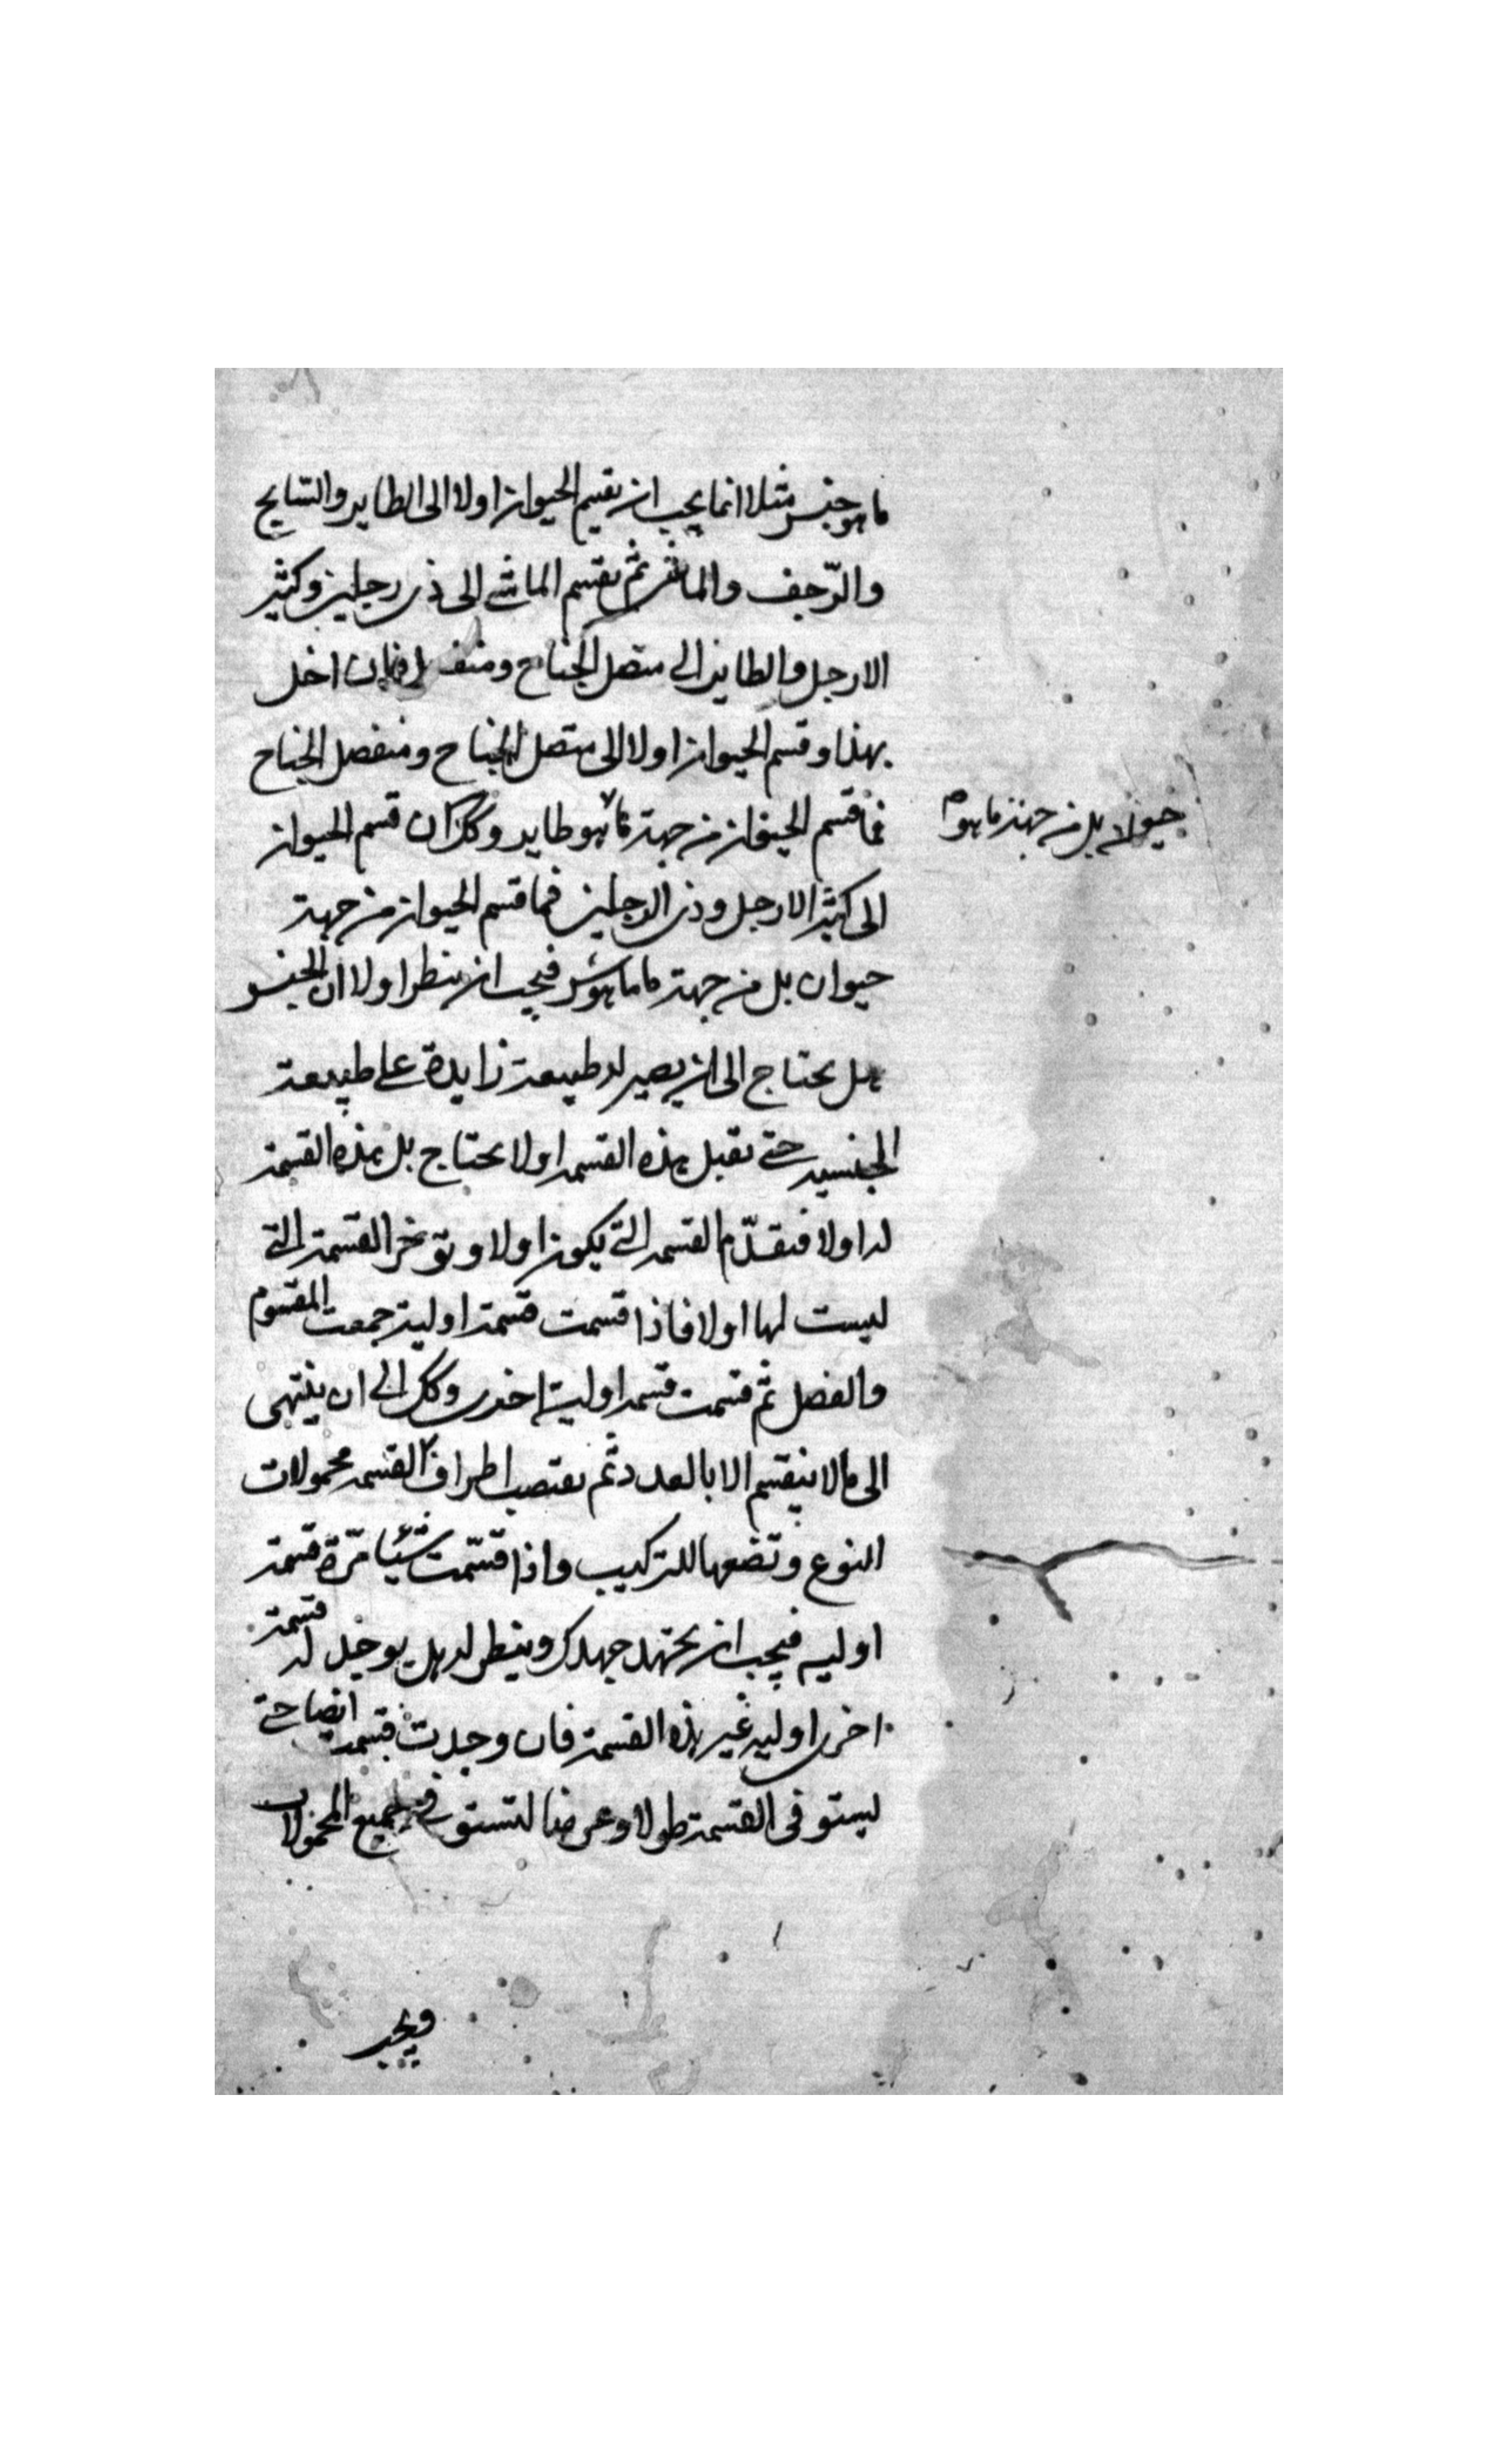 ما هو جنس مثلا انما يجب ان يقسم الحيوان اولا الى الطاير والسابح
والزحف والماشى ثم يقسم الماشى الى ذى رجلين وكثير
الارجل والطاير الى متصل الجناح ومنفصل فان اخل
بهذا وقسم الحيوان اولا الى متصل الجناح ومنفصل الجناح
فما قسم الحيوان من جهة ما هو طاير وكك ان قسم الحيوان
حيوان لا بل من جهة ما هو
الى كثير الارجل وذى الرجلين فما قسم الحيوان من جهة
حيوان بل من جهة ما ماهو ش فيجب ان ينظر اولا ان الجنس
هل يحتاج الى ان يصير له طبيعة زايدة على طبيعة
الجنسيه حتى يقبل هذه القسمه او لا يحتاج بل هذه القسمة
له اولا فيقدّم القسمه التى يكون اولا وتؤخر القسمة التى
ليست لها اولا فاذا قسمت قسمة اولية جمعت المقسوم
والفصل ثم قسمت قسمه اولية اخرى وكك الى ان ينتهى
الى ما لا ينقسم الا بالعدد ثم يقتصب اطراف القسمه محمولات
النوع وتضعها للتركيب واذا قسّمت شيئا مرّة قسمة
اوليه فيجب ان يجتهد جهدك وينظر له هل يوجد له قسمة
اخرى اوليه غير هذه القسمة فان وجدت قسمه ايضا حتى
يستوفى القسمة طولا وعرضا لتستوفى جميع المحمولات
ويجب